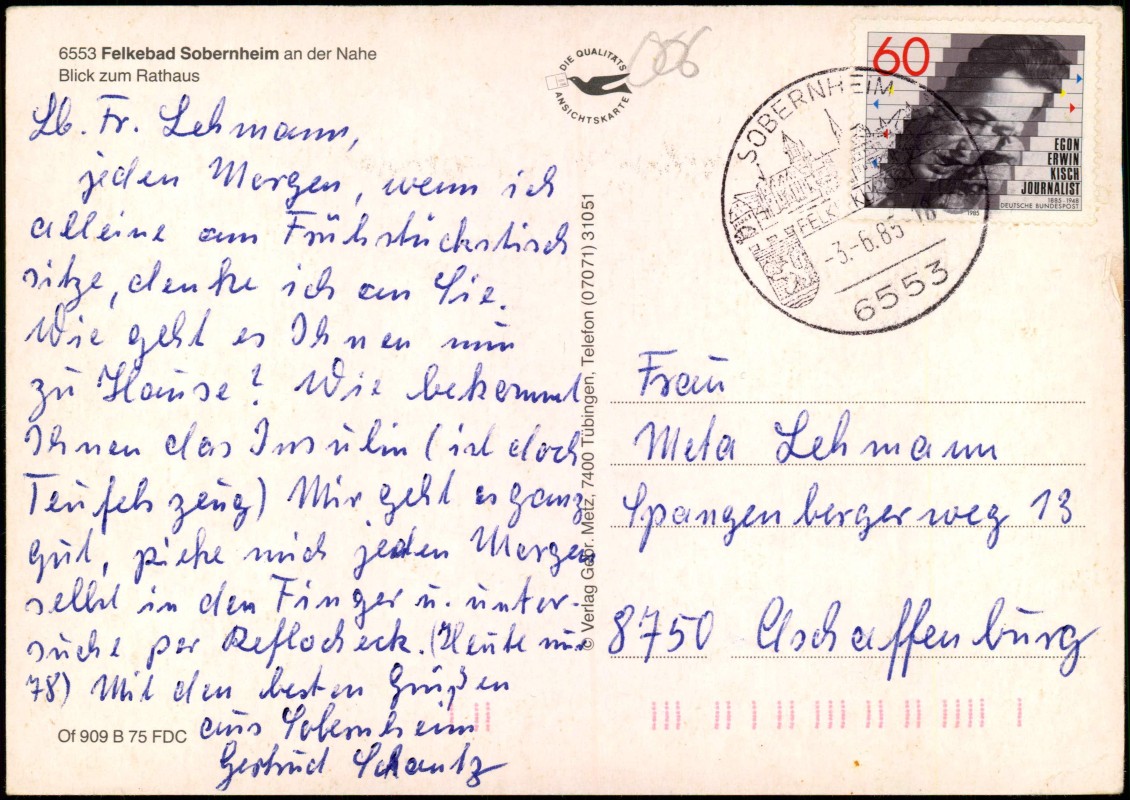 6553 Felkebad Sobernheim an der Nahe
Blick zum Rathaus
DIE QUALITÄTS
ANSICHTSKARTE
Lb. Fr. Lehmann,
jeden Morgen, wenn ich
alleine am Frühstückstisch
sitze, denke ich an Sie.
Wie geht es Ihnen nun
zu Hause? Wie bekommt
Ihnen das Insulin (ist doch
Teufelszeug) Mir geht es ganz
gut, pieke mich jeden Morgen
selbst in den Finger u. unter-
suche per Reflocheck. (Heute nur
78) Mit den besten Grüßen
aus Sobernheim
Gertrud Schantz
Of 909 B 75 FDC
© Verlag Gebr. Metz, 7400 Tübingen, Telefon (07071) 31051
60
EGON
ERWIN
KISCH
JOURNALIST
1885-1948
DEUTSCHE BUNDESPOST
1985
SOBERNHEIM
-3.-6.85-18
6553
Frau
Meta Lehmann
Spangenbergerweg 13
8750 Aschaffenburg